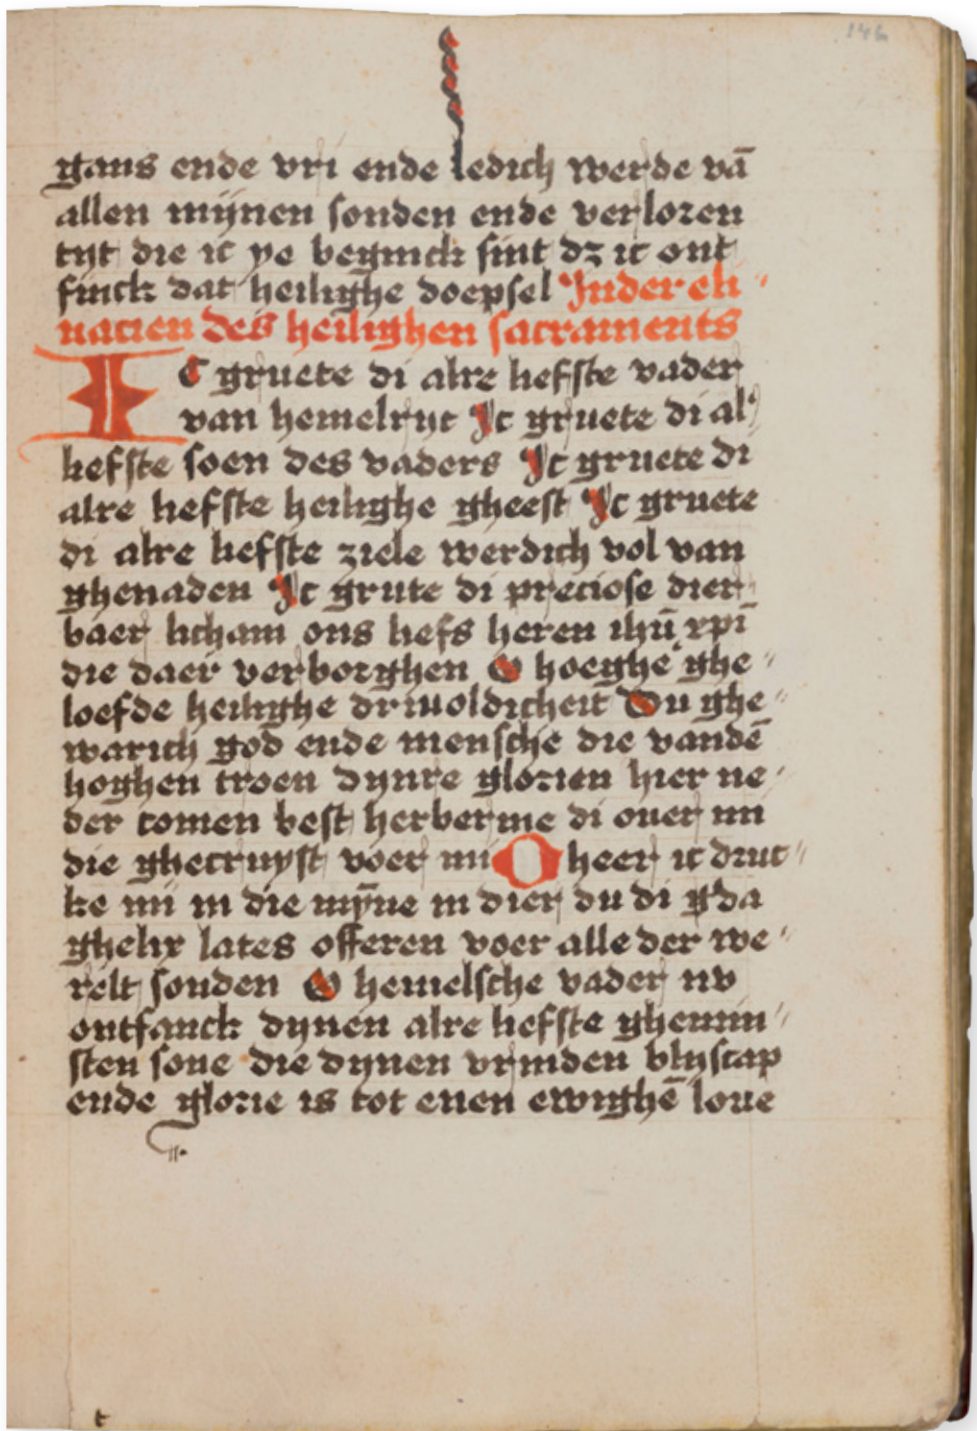 146
gans ende vri ende ledich werde vā
allen mijnen sonden ende verloren
tijt die ic ye beginck sint dz ic ont
finck dat heilighe doepsel In der ele
uacien des heilighen sacraments
IC gruete di alre liefste vader
van hemelrijc Ic gruete di al'
liefste soen des vaders Ic gruete di
alre liefste heilighe gheest Ic gruete
di alre liefste ziele werdich vol van
ghenaden Ic grute di preciose dier
baer licham ons liefs heren ihū xpī
die daer verborghen O hoeghe ghe
loefde heilighe driuoldicheit Du ghe
warich god ende mensche die vandē
hoghen troen dynre glorien hier ne
der comen best herberme di ouer mi
die ghecruyst voer mi O heer ic druc
ke mi in die mȳne in dier du di
ghelix lates offeren voer alle der we
relt sonden O hemelsche vader nv
ontfanck dynen alre liefste ghemin
sten sone die dynen vrinden blijscap
ende glorie is tot enen ewighē loue
t